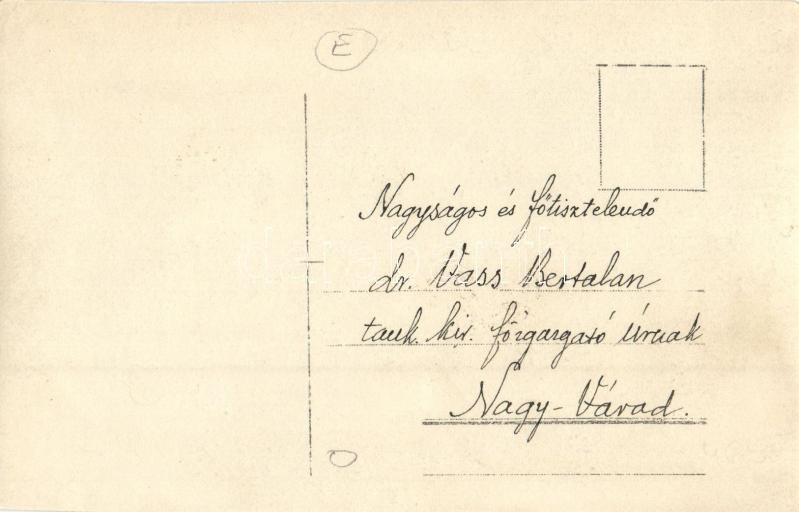 E
Nagyságos és főtisztelendő
dr. Vass Bertalan
tank. kir. főigazgató úrnak
Nagy-Várad.